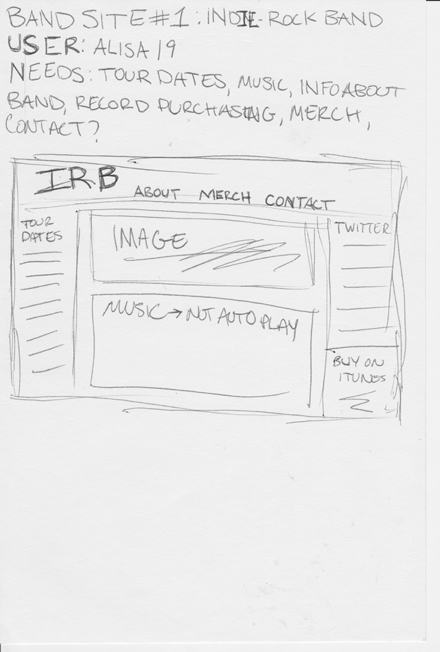 BAND SITE #1: INDIE-ROCK BAND
USER: ALISA 19
NEEDS: TOUR DATES, MUSIC, INFO ABOUT
BAND, RECORD PURCHASING, MERCH,
CONTACT?
IRB
ABOUT MERCH CONTACT
TOUR
DATES
IMAGE
MUSIC → NOT AUTO PLAY
TWITTER
BUY ON
ITUNES